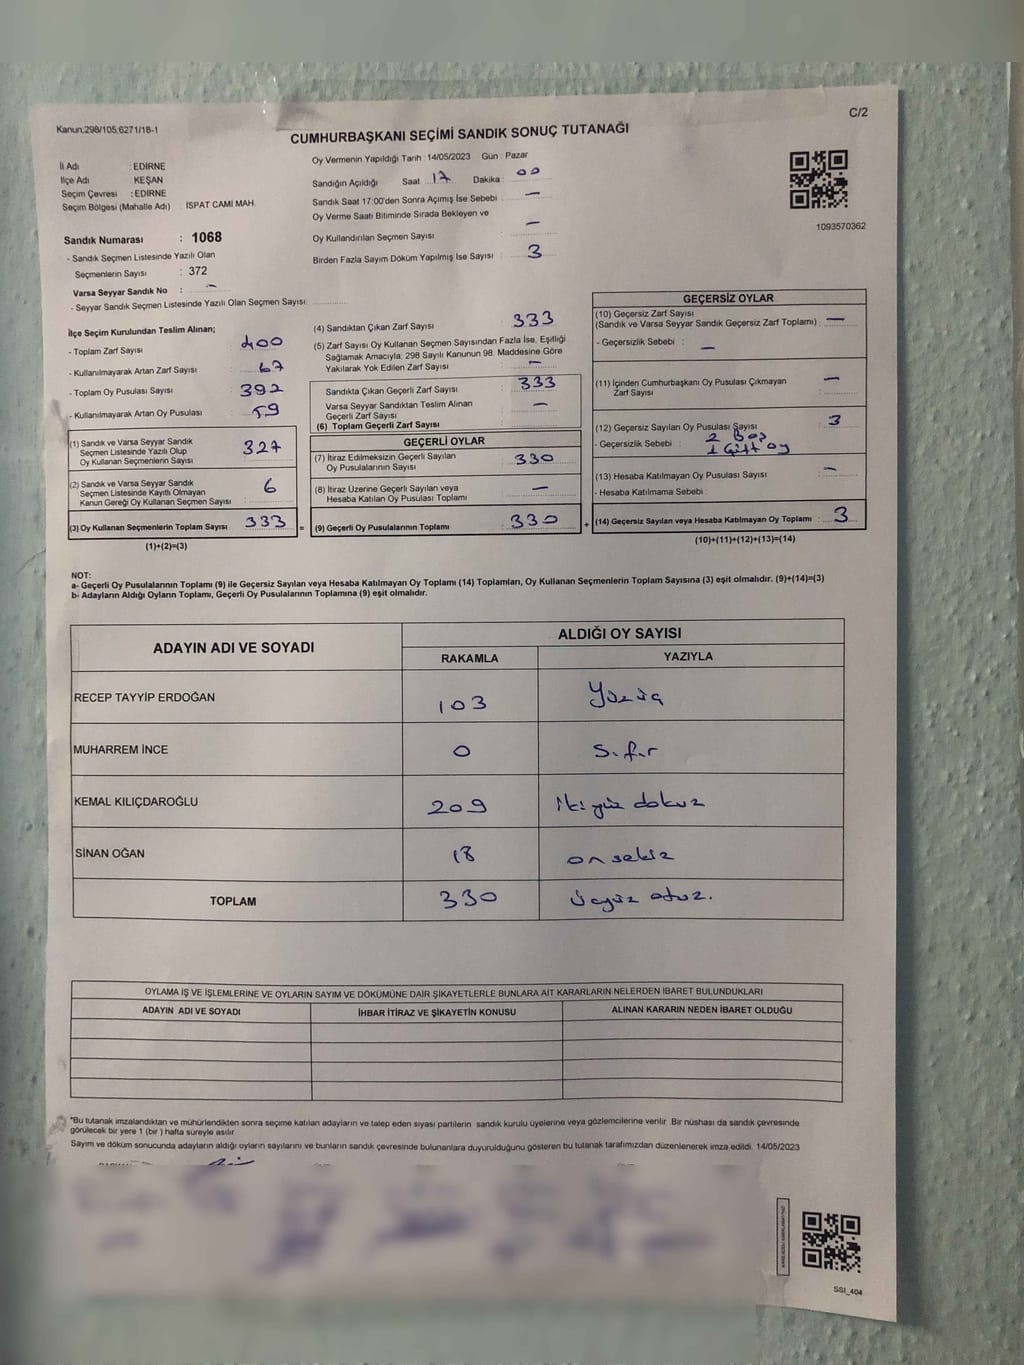 C/2
Kanun;298/105;6271/18-1
CUMHURBAŞKANI SEÇİMİ SANDIK SONUÇ TUTANAĞI
İl Adı : EDİRNE
İlçe Adı KEŞAN
Seçim Çevresi : EDİRNE
Seçim Bölgesi (Mahalle Adı) İSPAT CAMİ MAH.
Sandık Numarası : 1068
- Sandık Seçmen Listesinde Yazılı Olan
Seçmenlerin Sayısı : 372
Varsa Seyyar Sandık No : -
- Seyyar Sandık Seçmen Listesinde Yazılı Olan Seçmen Sayısı
Oy Vermenin Yapıldığı Tarih 14/05/2023 Gün : Pazar
Sandığın Açıldığı Saat 17 Dakika 00
Sandık Saat 17:00'den Sonra Açımış İse Sebebi -
Oy Verme Saati Bitiminde Sırada Bekleyen ve
Oy Kullandırılan Seçmen Sayısı -
Birden Fazla Sayım Döküm Yapılmış İse Sayısı 3
1093570362
İlçe Seçim Kurulundan Teslim Alınan;
- Toplam Zarf Sayısı 400
- Kullanılmayarak Artan Zarf Sayısı 67
- Toplam Oy Pusulası Sayısı 392
- Kullanılmayarak Artan Oy Pusulası 59
(1) Sandık ve Varsa Seyyar Sandık
Seçmen Listesinde Yazılı Olup
Oy Kullanan Seçmenlerin Sayısı 327
(2) Sandık ve Varsa Seyyar Sandık
Seçmen Listesinde Kayıtlı Olmayan
Kanun Gereği Oy Kullanan Seçmen Sayısı 6
(3) Oy Kullanan Seçmenlerin Toplam Sayısı 333 =
(1)+(2)=(3)
(4) Sandıktan Çıkan Zarf Sayısı 333
(5) Zarf Sayısı Oy Kullanan Seçmen Sayısından Fazla İse, Eşitliği
Sağlamak Amacıyla; 298 Sayılı Kanunun 98. Maddesine Göre
Yakılarak Yok Edilen Zarf Sayısı -
Sandıkta Çıkan Geçerli Zarf Sayısı 333
Varsa Seyyar Sandıktan Teslim Alınan
Geçerli Zarf Sayısı -
(6) Toplam Geçerli Zarf Sayısı
GEÇERLİ OYLAR
(7) İtiraz Edilmeksizin Geçerli Sayılan
Oy Pusulalarının Sayısı 330
(8) İtiraz Üzerine Geçerli Sayılan veya
Hesaba Katılan Oy Pusulası Toplamı -
(9) Geçerli Oy Pusulalarının Toplamı 330 +
GEÇERSİZ OYLAR
(10) Geçersiz Zarf Sayısı
(Sandık ve Varsa Seyyar Sandık Geçersiz Zarf Toplamı) : -
- Geçersizlik Sebebi : -
(11) İçinden Cumhurbaşkanı Oy Pusulası Çıkmayan
Zarf Sayısı -
(12) Geçersiz Sayılan Oy Pusulası Sayısı 3
- Geçersizlik Sebebi : 2 Boş
1 Çift oy
(13) Hesaba Katılmayan Oy Pusulası Sayısı -
- Hesaba Katılmama Sebebi :
(14) Geçersiz Sayılan veya Hesaba Katılmayan Oy Toplamı : 3
(10)+(11)+(12)+(13)=(14)
NOT:
a- Geçerli Oy Pusulalarının Toplamı (9) ile Geçersiz Sayılan veya Hesaba Katılmayan Oy Toplamı (14) Toplamları, Oy Kullanan Seçmenlerin Toplam Sayısına (3) eşit olmalıdır. (9)+(14)=(3)
b- Adayların Aldığı Oyların Toplamı, Geçerli Oy Pusulalarının Toplamına (9) eşit olmalıdır.
ADAYIN ADI VE SOYADI ALDIĞI OY SAYISI
RAKAMLA YAZIYLA
RECEP TAYYİP ERDOĞAN 103 Yüzüç
MUHARREM İNCE 0 Sıfır
KEMAL KILIÇDAROĞLU 209 İkiyüz dokuz
SİNAN OĞAN 18 on sekiz
TOPLAM 330 Üçyüz otuz.
OYLAMA İŞ VE İŞLEMLERİNE VE OYLARIN SAYIM VE DÖKÜMÜNE DAİR ŞİKAYETLERLE BUNLARA AİT KARARLARIN NELERDEN İBARET BULUNDUKLARI
ADAYIN ADI VE SOYADI İHBAR İTİRAZ VE ŞİKAYETİN KONUSU ALINAN KARARIN NEDEN İBARET OLDUĞU
*Bu tutanak imzalandıktan ve mühürlendikten sonra seçime katılan adayların ve talep eden siyasi partilerin sandık kurulu üyelerine veya gözlemcilerine verilir. Bir nüshası da sandık çevresinde
görülecek bir yere 1 (bir ) hafta süreyle asılır.
Sayım ve döküm sonucunda adayların aldığı oyların sayılarını ve bunların sandık çevresinde bulunanlara duyurulduğunu gösteren bu tutanak tarafımızdan düzenlenerek imza edildi. 14/05/2023
SSI_404